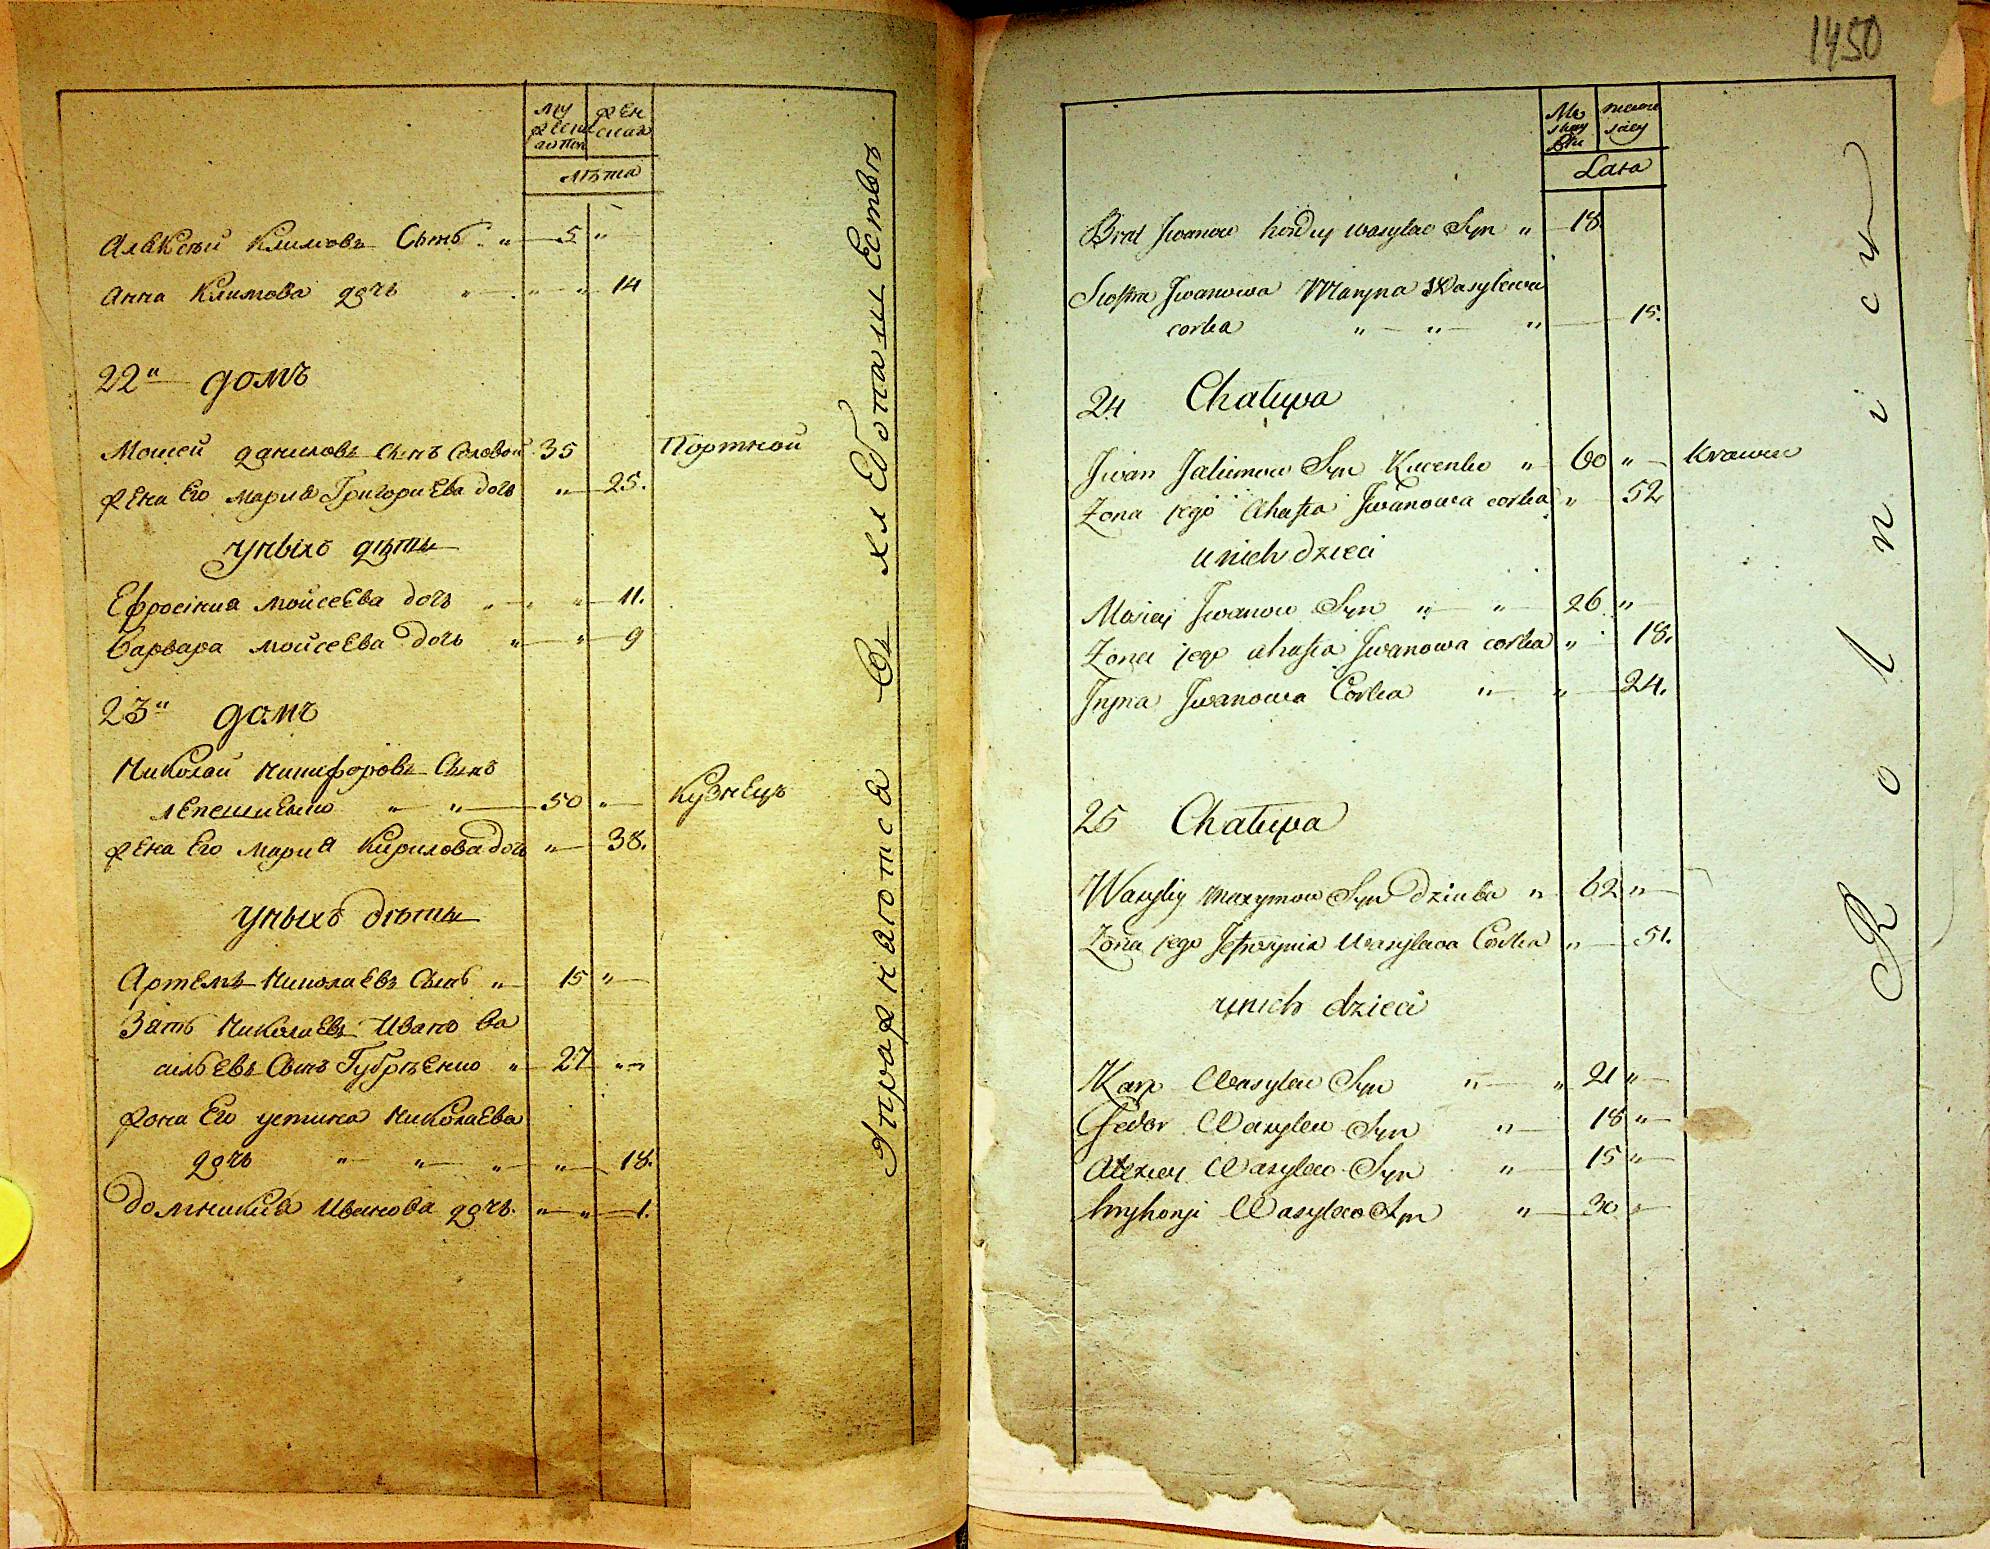 му жеска жен ская
лѣта
Алексѣй Климовъ Сынъ „ 5 „
Анна Климова дочь „ „ „ 14
22„ домъ
Моисей даниловъ сынъ Соловей 35 Портной
жена Его Мария Григориева дочь „ 25.
унихъ дѣти
Ефросиния моисеева дочь „ „ 11.
Варвара моисеева дочь „ „ 9
23„ домъ
Николай Никифоровъ Сынъ
„ „ 50 „ Кузнецъ
жена Его Мария Кирилова дочь „ 38.
унихъ дѣти
Артемъ Николаевъ Сынъ „ 15 „
Зять Николаевъ Иванъ Ва
сильевъ Сынъ „ 27 „
жона Его устина Николаева
дочь „ „ „ „ 18.
домникия Иванова дочь. „ „ 1.
Упражнаютса Въ хлебопашестве
1450
Lata
Brat Iwanow Hordiy wasylow Syn „ 18.
Siostra Iwanowa Maryna Wasylewa
corka „ „ „ 15.
24 Chatupa
Iwan Jakimow Syn „ 60 „ Krawiec
Zona jego Ahafia Iwanowa corka „ 52
unich dzieci
Mosiey Iwanow Syn „ „ 26 „
Zona jego ahafia Iwanowa corka „ 18.
Iryna Iwanowa Corka „ „ 24.
25 Chatupa
Wasyliy Maxymow Syn Dziuba „ 62 „
Zona jego Jefrosynia Wasylewa Corka „ 51.
unich dzieci
Karp Wasylew Syn „ „ 21 „
Fedor Wasylew Syn „ 18 „
Alexiey Wasylew Syn „ 15 „
Wasylew Syn „ 30 „
Rolnicy